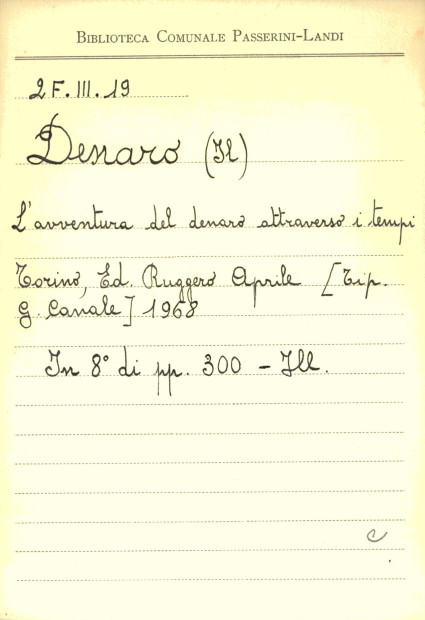 Biblioteca Comunale Passerini-Landi
2 F. III. 19
Denaro (Il)
L'avventura del denaro attraverso i tempi
Torino, Ed. Ruggero Aprile [Tip.
G. Canale] 1968
In 8° di pp. 300 - Ill.
C